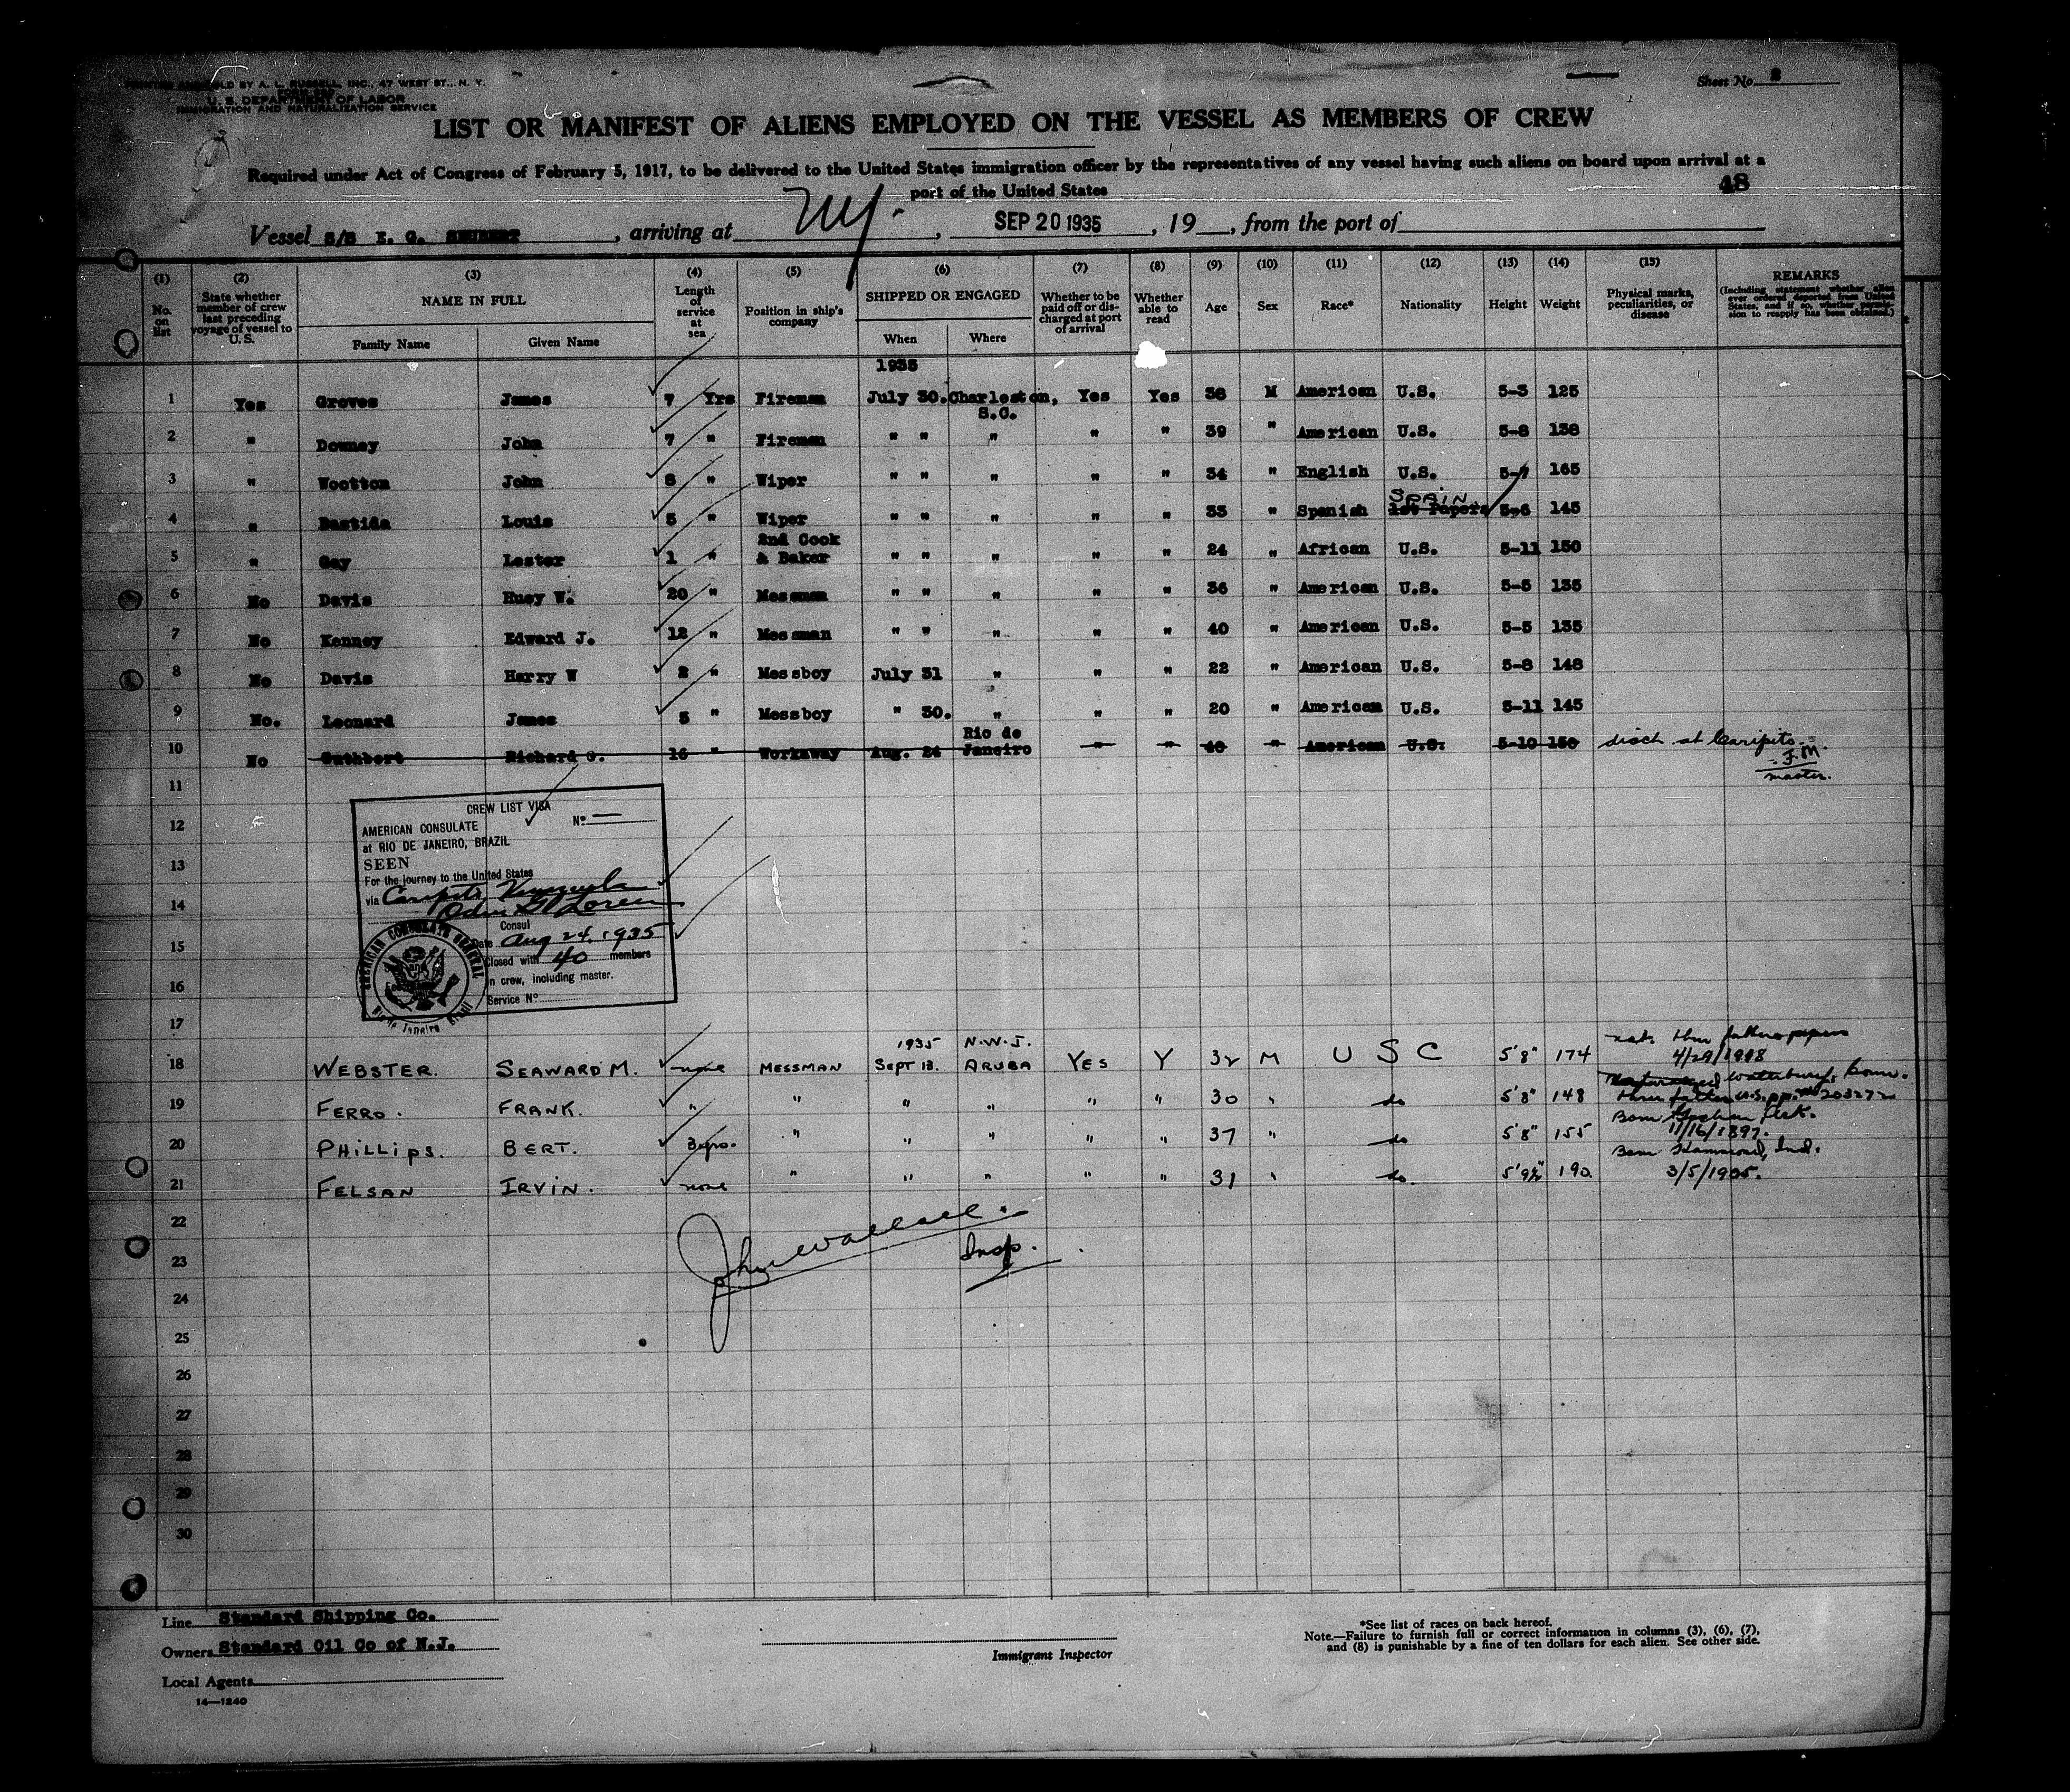 PRINTED AND SOLD BY A. L. RUSSELL, INC., 47 WEST ST., N. Y.
U. S. DEPARTMENT OF LABOR
IMMIGRATION AND NATURALIZATION SERVICE
Sheet No.
LIST OR MANIFEST OF ALIENS EMPLOYED ON THE VESSEL AS MEMBERS OF CREW
Required under Act of Congress of February 5, 1917, to be delivered to the United States immigration officer by the representatives of any vessel having such aliens on board upon arrival at a
port of the United States
48
Vessel S/S E. G. , arriving at NY. , SEP 20 1935 , 19 , from the port of
(1) (2) (3) (4) (5) (6) (7) (8) (9) (10) (11) (12) (13) (14) (15)
No. on list
State whether member of crew last preceding voyage of vessel to U. S.
NAME IN FULL
Family Name Given Name
Length of service at sea
Position in ship's company
SHIPPED OR ENGAGED
When Where
Whether to be paid off or discharged at port of arrival
Whether able to read
Age Sex Race* Nationality Height Weight
Physical marks, peculiarities, or disease
REMARKS
(Including statement whether alien ever ordered deported from United States, and if so, whether permission to reapply has been obtained.)
1935
1 Yes Groves James 7 Yrs Fireman July 30. Charleston, S.C. Yes Yes 38 M American U.S. 5-3 125
2 " Downey John 7 " Fireman " " " " " 39 " American U.S. 5-8 138
3 " Wootton John 8 " Wiper " " " " " 34 " English U.S. 5-7 165
SPAIN
4 " Bastida Louis 5 " Wiper " " " " " 33 " Spanish 1st Papers 5-6 145
5 " Gay Lester 1 " 2nd Cook & Baker " " " " " 24 " African U.S. 5-11 150
6 No Davis Huey W. 20 " Messman " " " " " 36 " American U.S. 5-5 135
7 No Kenney Edward J. 12 " Messman " " " " " 40 " American U.S. 5-5 135
8 No Davis Harry W 2 " Messboy July 31 " " " 22 " American U.S. 5-8 148
9 No. Leonard James 5 " Messboy " 30. " " " 20 " American U.S. 5-11 145
10 No Cuthbert Richard G. 16 " Workaway Aug. 24 Rio de Janeiro " " 40 " American U.S. 5-10 150 disch at Caripito.
F.M.
master.
11
12
13
14
15
16
17
CREW LIST VISA
AMERICAN CONSULATE Nº —
at RIO DE JANEIRO, BRAZIL
SEEN
For the journey to the United States
via Caripito, Venezuela
Consul
Date Aug 24, 1935
Closed with 40 members
in crew, including master.
Service Nº
AMERICAN CONSULATE GENERAL
Rio de Janeiro Brazil
1935 N.W.I. nat. thru fathers papers
18 WEBSTER. SEAWARD M. none MESSMAN SEPT 13. ARUBA YES Y 32 M U S C 5'8" 174 4/29/1918
Naturalized Waterbury, Conn.
19 FERRO. FRANK. " " " " " " 30 " do 5'8" 148 thru father U.S. pp. no 203272
Born Goshen Ark.
20 PHILLIPS. BERT. 3 yrs. " " " " " 37 " do 5'8" 155 11/16/1897.
Born Hammond, Ind.
21 FELSAN IRVIN. none " " " " " 31 " do. 5'9½" 190. 3/5/1905.
22
23
John Wallace.
Insp.
24
25
26
27
28
29
30
Line Standard Shipping Co.
Owners Standard Oil Co of N.J.
Local Agents
14—1240
Immigrant Inspector
*See list of races on back hereof.
Note.—Failure to furnish full or correct information in columns (3), (6), (7),
and (8) is punishable by a fine of ten dollars for each alien. See other side.